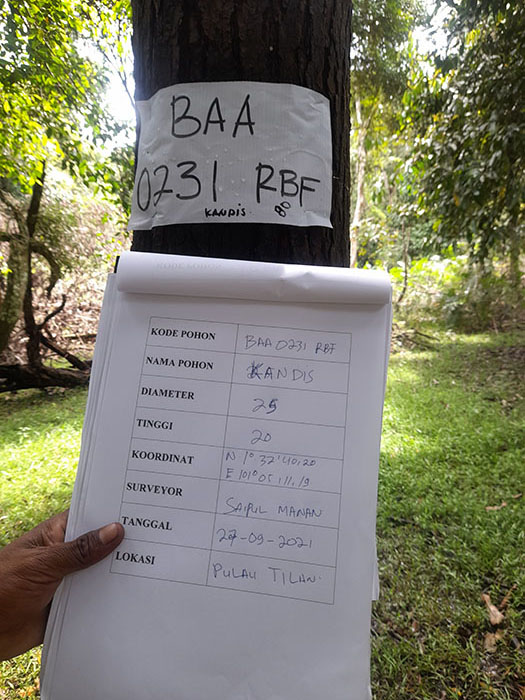 BAA
0231 RBF
KANDIS
KODE POHON BAA 0231 RBF
NAMA POHON KANDIS
DIAMETER 25
TINGGI 20
KOORDINAT N 1° 32' 40,20
E 101° 05 111,19
SURVEYOR SAIFUL MANAN
TANGGAL 27-09-2021
LOKASI PULAU TILAN